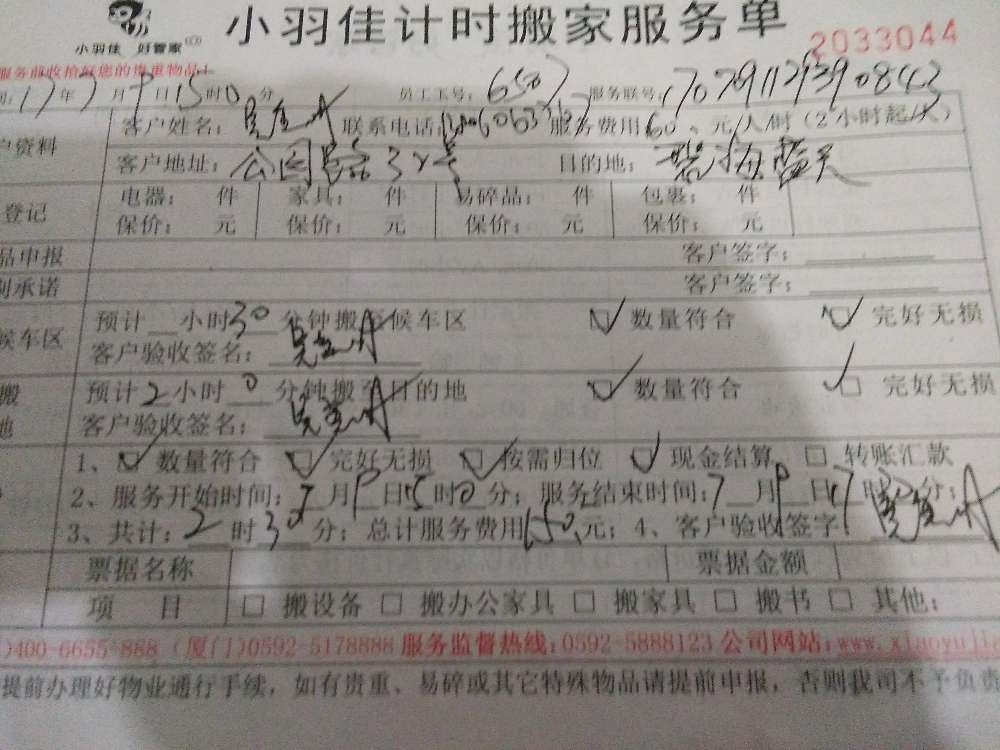 小羽佳 好管家
小羽佳计时搬家服务单
2033044
服务前收拾好您的贵重物品!
17年7月9日15时0分 员工工号: 6507 服务联号: 17079112939 0843
户资料 客户姓名: 联系电话: 服务费用60元/人/时(2小时起/次)
客户地址: 公园 目的地: 碧海蓝天
登记 电器: 件 家具: 件 易碎品: 件 包裹: 件
保价: 元 保价: 元 保价: 元 保价: 元
品申报 客户签字:
制承诺 客户签字:
候车区 预计 小时30分钟搬至候车区 数量符合 完好无损
客户验收签名:
搬 预计2小时0分钟搬至目的地 数量符合 完好无损
地 客户验收签名:
1、 数量符合 完好无损 按需归位 现金结算 转账汇款
2、服务开始时间: 7月9日15时0分; 服务结束时间: 7月9日17 分;
3、共计: 2时30分; 总计服务费用150元; 4、客户验收签字
票据名称 票据金额
项 目 搬设备 搬办公家具 搬家具 搬书 其他:
)400-6655-888 (厦门)0592-5178888 服务监督热线:0592-5888123 公司网站:www.xiaoyujia
提前办理好物业通行手续,如有贵重、易碎或其它特殊物品请提前申报,否则我司不予负责